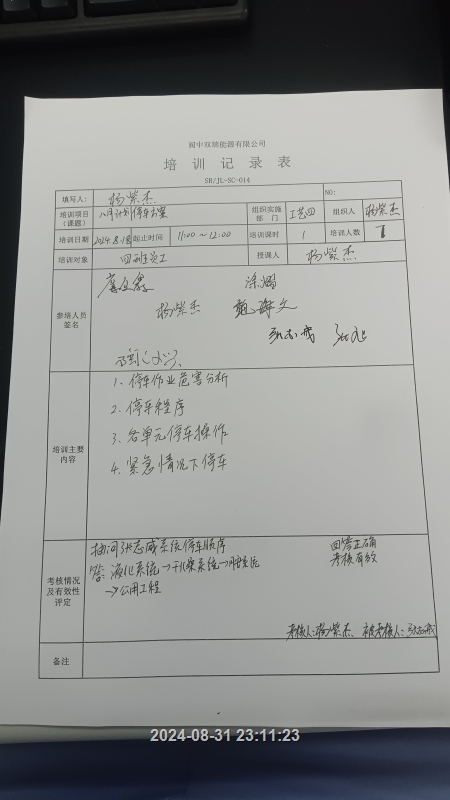 阆中双瑞能源有限公司
培训记录表
SR/JL-SC-014
填写人： 杨紫杰 NO:
培训项目（课题） 八月计划停车方案 组织实施部门 工艺四 组织人 杨紫杰
培训日期 2024.8.18 起止时间 11:00～12:00 培训课时 1 培训人数 7
培训对象 四班员工 授课人 杨紫杰
参培人员签名
杨紫杰
培训主要内容
1. 停车作业危害分析
2. 停车程序
3. 各单元停车操作
4. 紧急情况下停车
考核情况及有效性评定
抽问张志威系统停车顺序
答：液化系统→干燥系统→脱
→公用工程
回答正确
考核有效
考核人：杨紫杰、被考核人：张志威
备注
2024-08-31 23:11:23